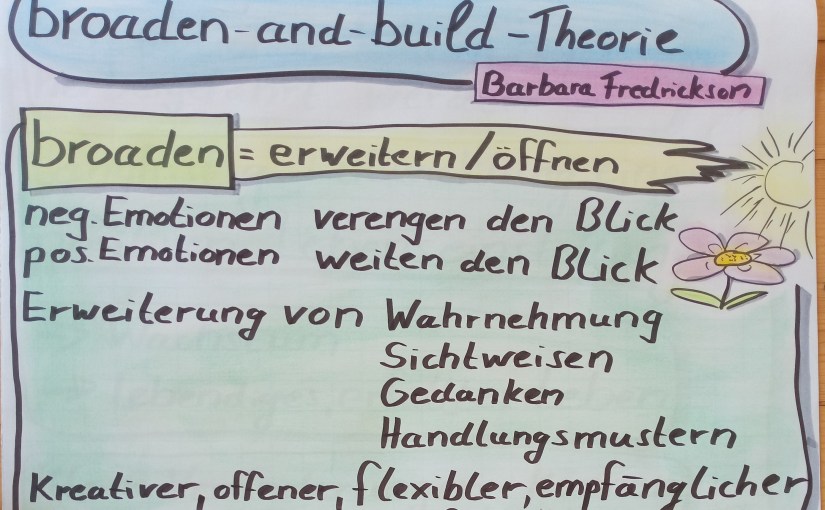 broaden-and-build-Theorie
Barbara Fredrickson
broaden = erweitern/öffnen
neg. Emotionen verengen den Blick
pos. Emotionen weiten den Blick
Erweiterung von Wahrnehmung
Sichtweisen
Gedanken
Handlungsmustern
Kreativer, offener, flexibler, empfänglicher